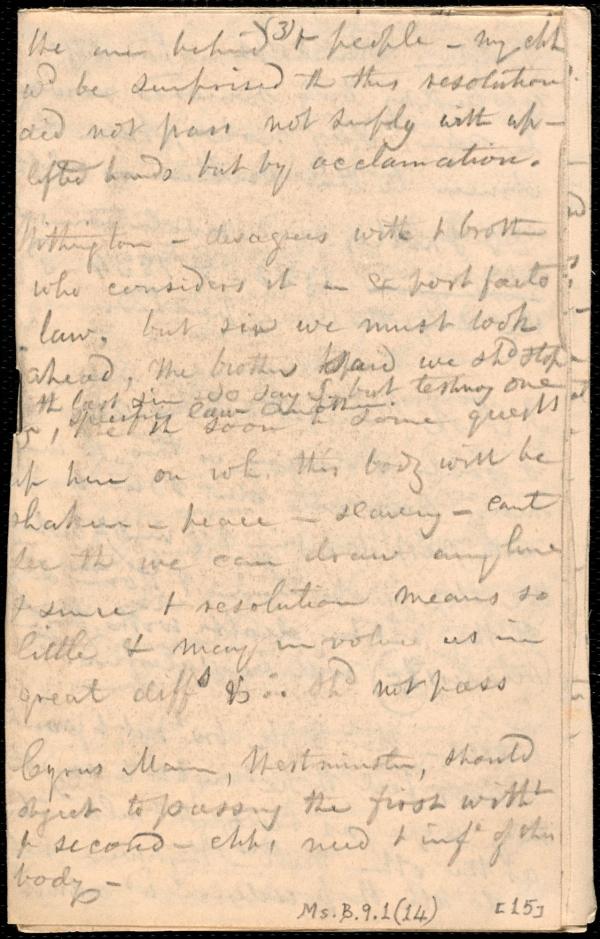 (3)
the one behind & people – my chh
wd be surprised th this resolution
did not pass not simply with up–
lifted hands but by acclamation.
Withington – disagrees with + broth
who considers it – ex post facto
law. but sin we must look
ahead, the brother said we shd stop
th last sin so say I, but testimony one
specific law another.
soon some quests
up here on wh. this body will be
shaken – peace – slavery – cant
see th we can draw any line
& since + resolution means so
little & may involve us in
great diffs ∴ shd not pass
Cyrus Mann, Westminster, should
object to passing the first witht
+ second – chhs need + infe of this
body –
Ms.B.9.1(14) [15]